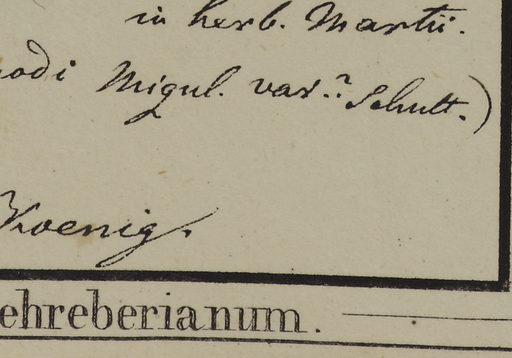 in herb. Martii.
odi Miqul. var.? Schult.)
Koenig.
ehreberianum.